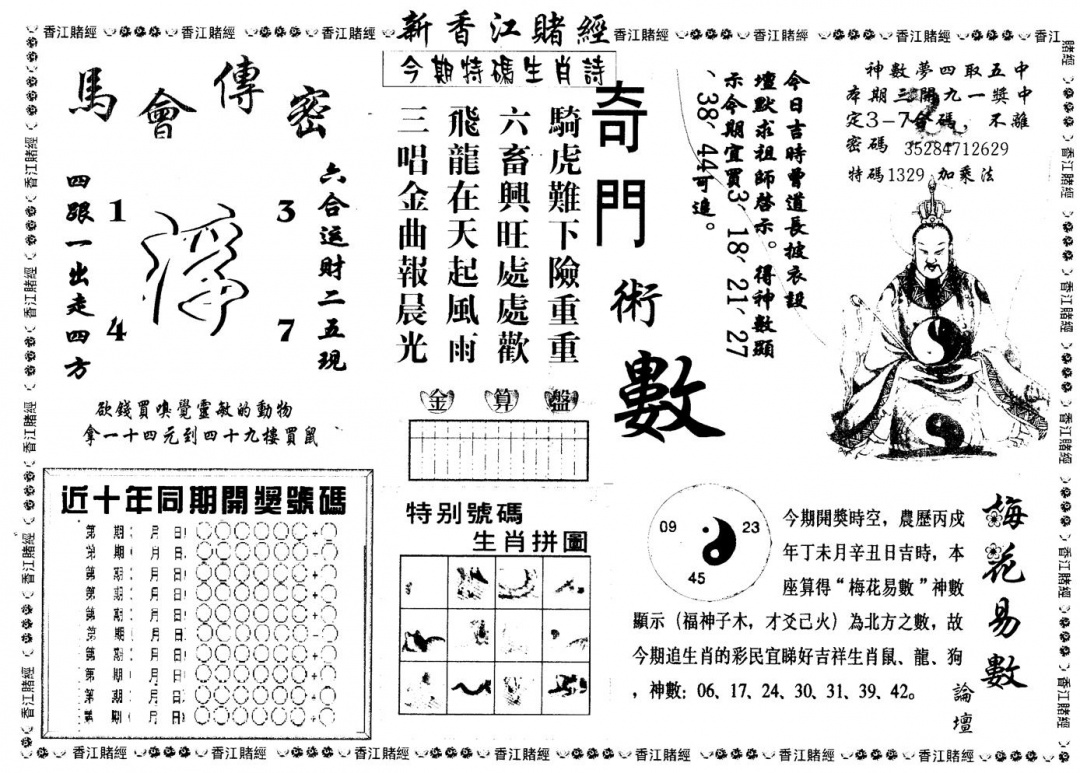 新香江賭經
香江賭經 香江賭經 香江賭經 香江賭經 香江賭經 香江賭經 香江
馬會傳密
六合运財二五現
四跟一出走四方
1 3
4 7
欲錢買嗅覺靈敏的動物
拿一十四元到四十九樓買鼠
近十年同期開獎號碼
第 期: 月 日: +
第 期( 月 日( -
第 期: 月 日: +
第 期: 月 日: +
第 期: 月 日: +
第 期( 月 日( -
第 期: 月 日: +
第 期: 月 日: +
第 期: 月 日: +
第 期( 月 日( -
今期特碼生肖詩
騎虎難下險重重
六畜興旺處處歡
飛龍在天起風雨
三唱金曲報晨光
金算盤
特别號碼
生肖拼圖
奇門術數
今日吉時曹道長披衣設
壇默求祖師啓示。得神數顯
示今期宜買3、18、21、27
、38、44可追。
神數夢四取五中
本期三開九一獎中
定3-7合碼，不離
密碼 35284712629
特碼1329 加乘法
09 23
45
梅花易數
論壇
今期開獎時空，農歷丙戌
年丁未月辛丑日吉時，本
座算得“梅花易數”神數
顯示（福神子木，才爻己火）為北方之數，故
今期追生肖的彩民宜睇好吉祥生肖鼠、龍、狗
，神數：06、17、24、30、31、39、42。
香江賭經 香江賭經 香江賭經 香江賭經 香江賭經 香江賭經 香江賭經